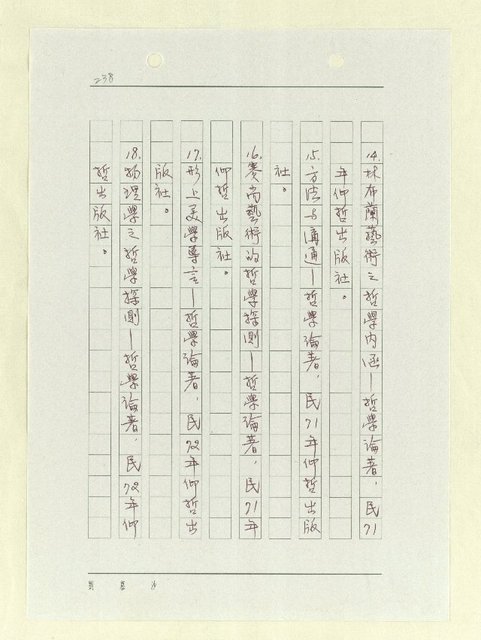 238
14.林布蘭藝術之哲學內涵—哲學論著,民71
年仰哲出版社。
15.方法与溝通—哲學論著,民71年仰哲出版
社。
16.賽尚藝術的哲學探測—哲學論著,民71年
仰哲出版社。
17.形上美學導言—哲學論著,民72年仰哲出
版社。
18.物理學之哲學探測—哲學論著,民72年仰
哲出版社。
劉慕沙